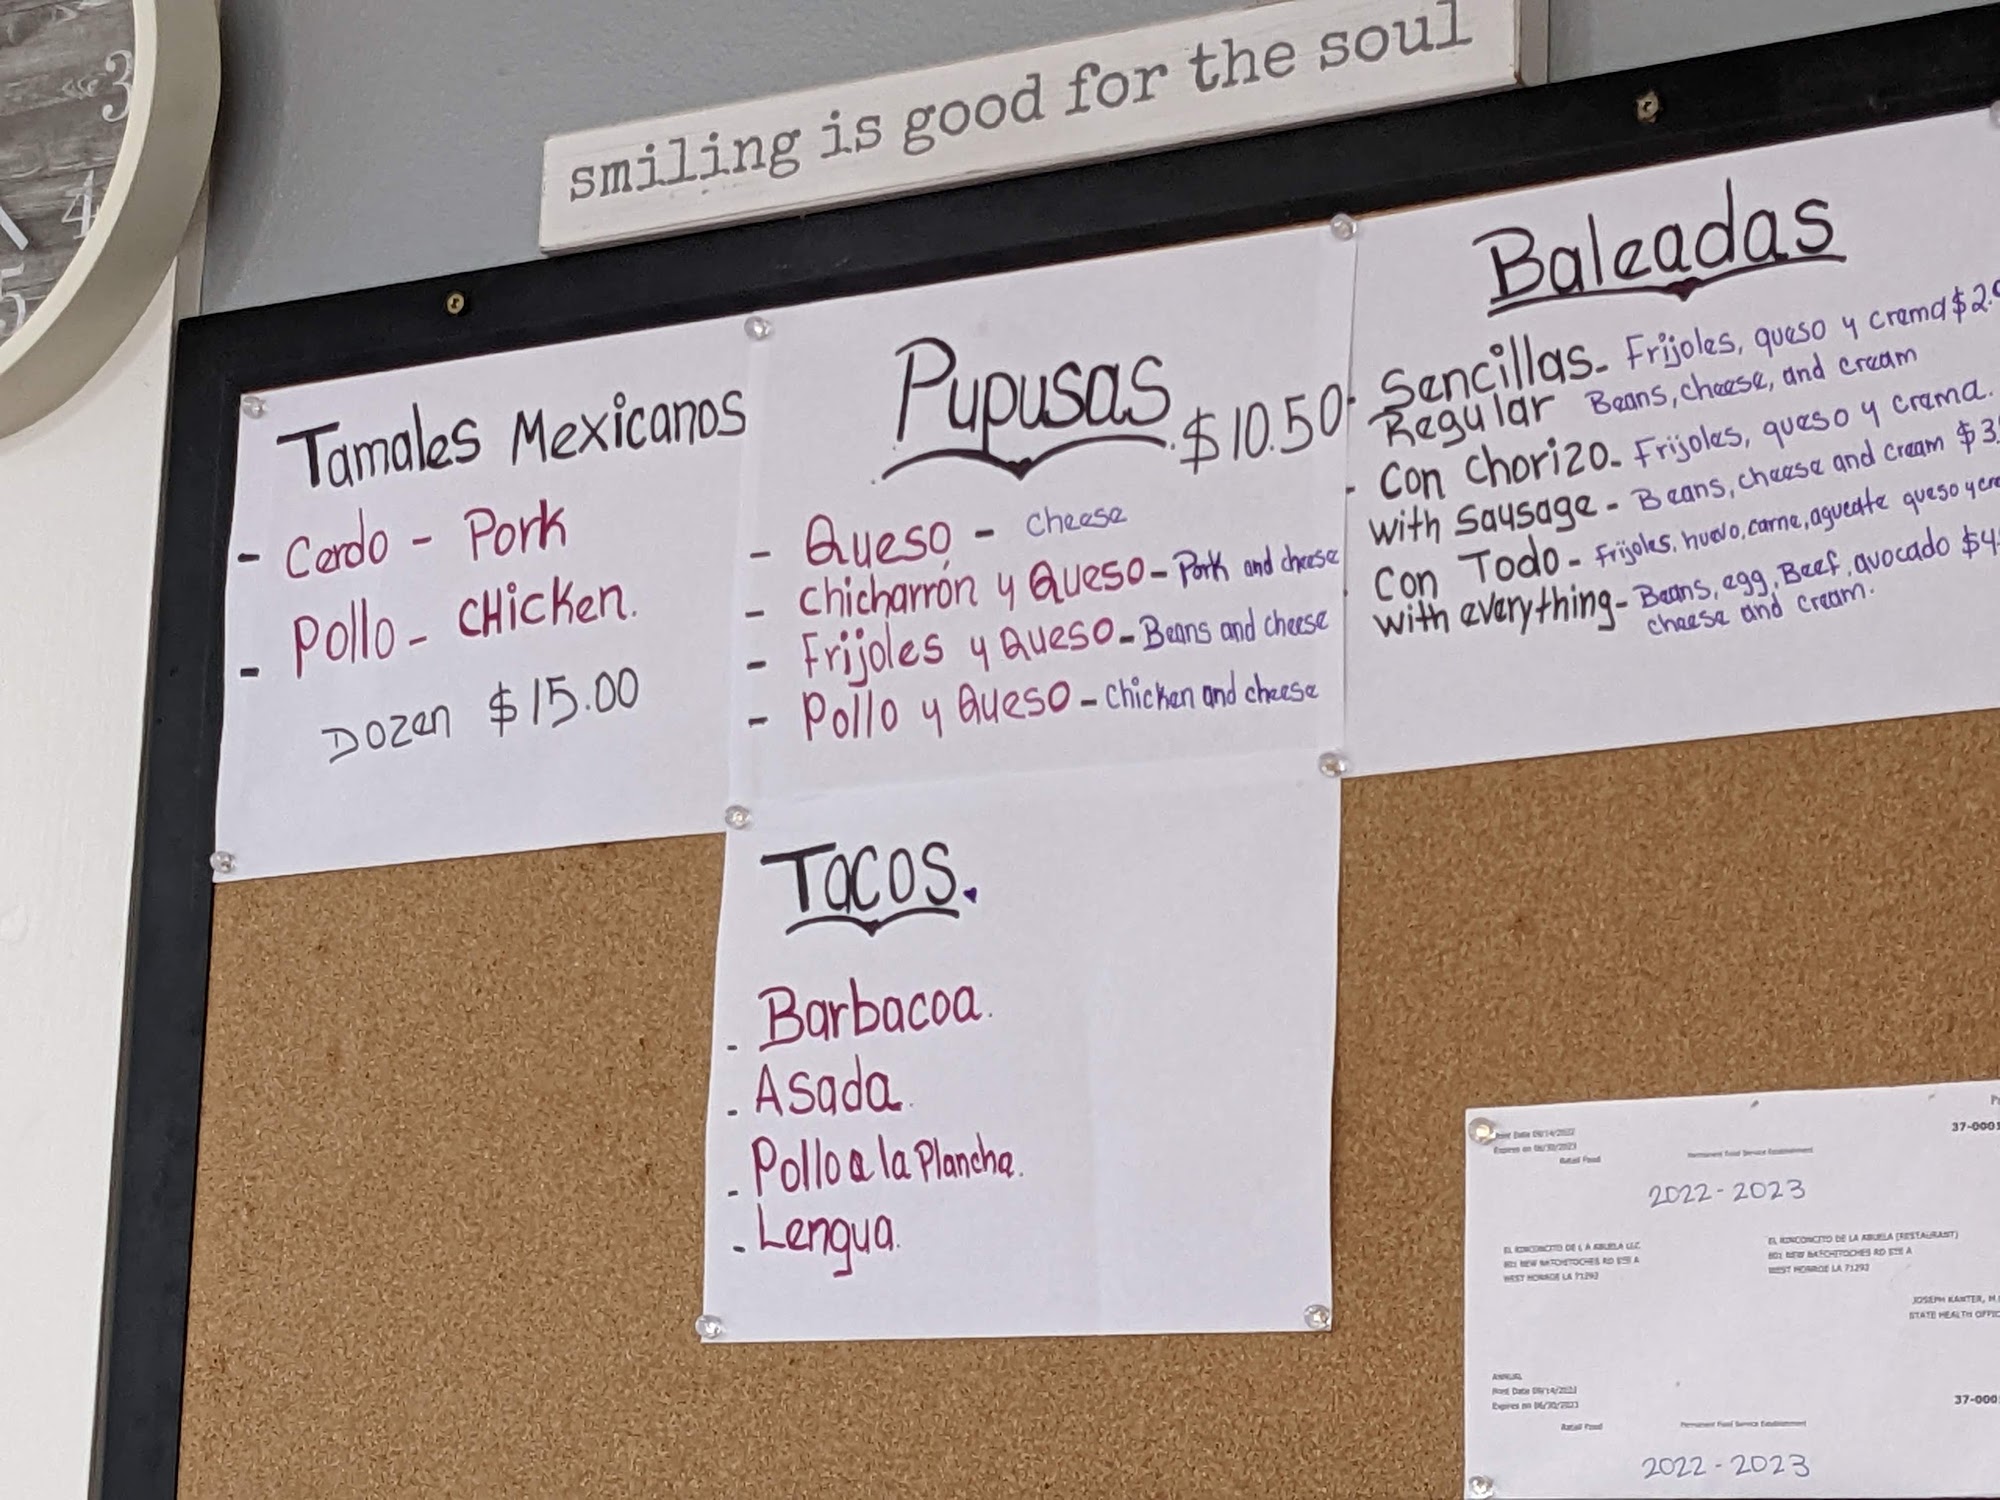 3
4
5
smiling is good for the soul
Tamales Mexicanos
- Cerdo - Pork
- Pollo - CHicken.
Dozen $15.00
Pupusas $10.50
- Queso - cheese
- Chicharrón y Queso - Pork and cheese
- Frijoles y Queso - Beans and cheese
- Pollo y Queso - Chicken and cheese
Baleadas
- Sencillas - Frijoles, queso y crema $2.
Regular Beans, cheese, and cream
- Con Chorizo - Frijoles, queso y crema.
with sausage - Beans, cheese and cream $3.
- Con Todo - Frijoles, huevo, carne, aguacate queso y cre
with everything - Beans, egg, Beef, avocado $4.
cheese and cream.
Tacos.
- Barbacoa.
- Asada.
- Pollo a la Plancha.
- Lengua.
37-0001
Print Date 09/14/2022
Expires on 06/30/2023
Retail Food
Permanent Food Service Establishment
2022-2023
EL RINCONCITO DE LA ABUELA LLC
801 NEW NATCHITOCHES RD STE A
WEST MONROE LA 71292
EL RINCONCITO DE LA ABUELA (RESTAURANT)
801 NEW NATCHITOCHES RD STE A
WEST MONROE LA 71292
JOSEPH KANTER, M.
STATE HEALTH OFFIC
ANNUAL
Print Date 09/14/2022
Expires on 06/30/2023
37-000
Retail Food
Permanent Food Service Establishment
2022-2023